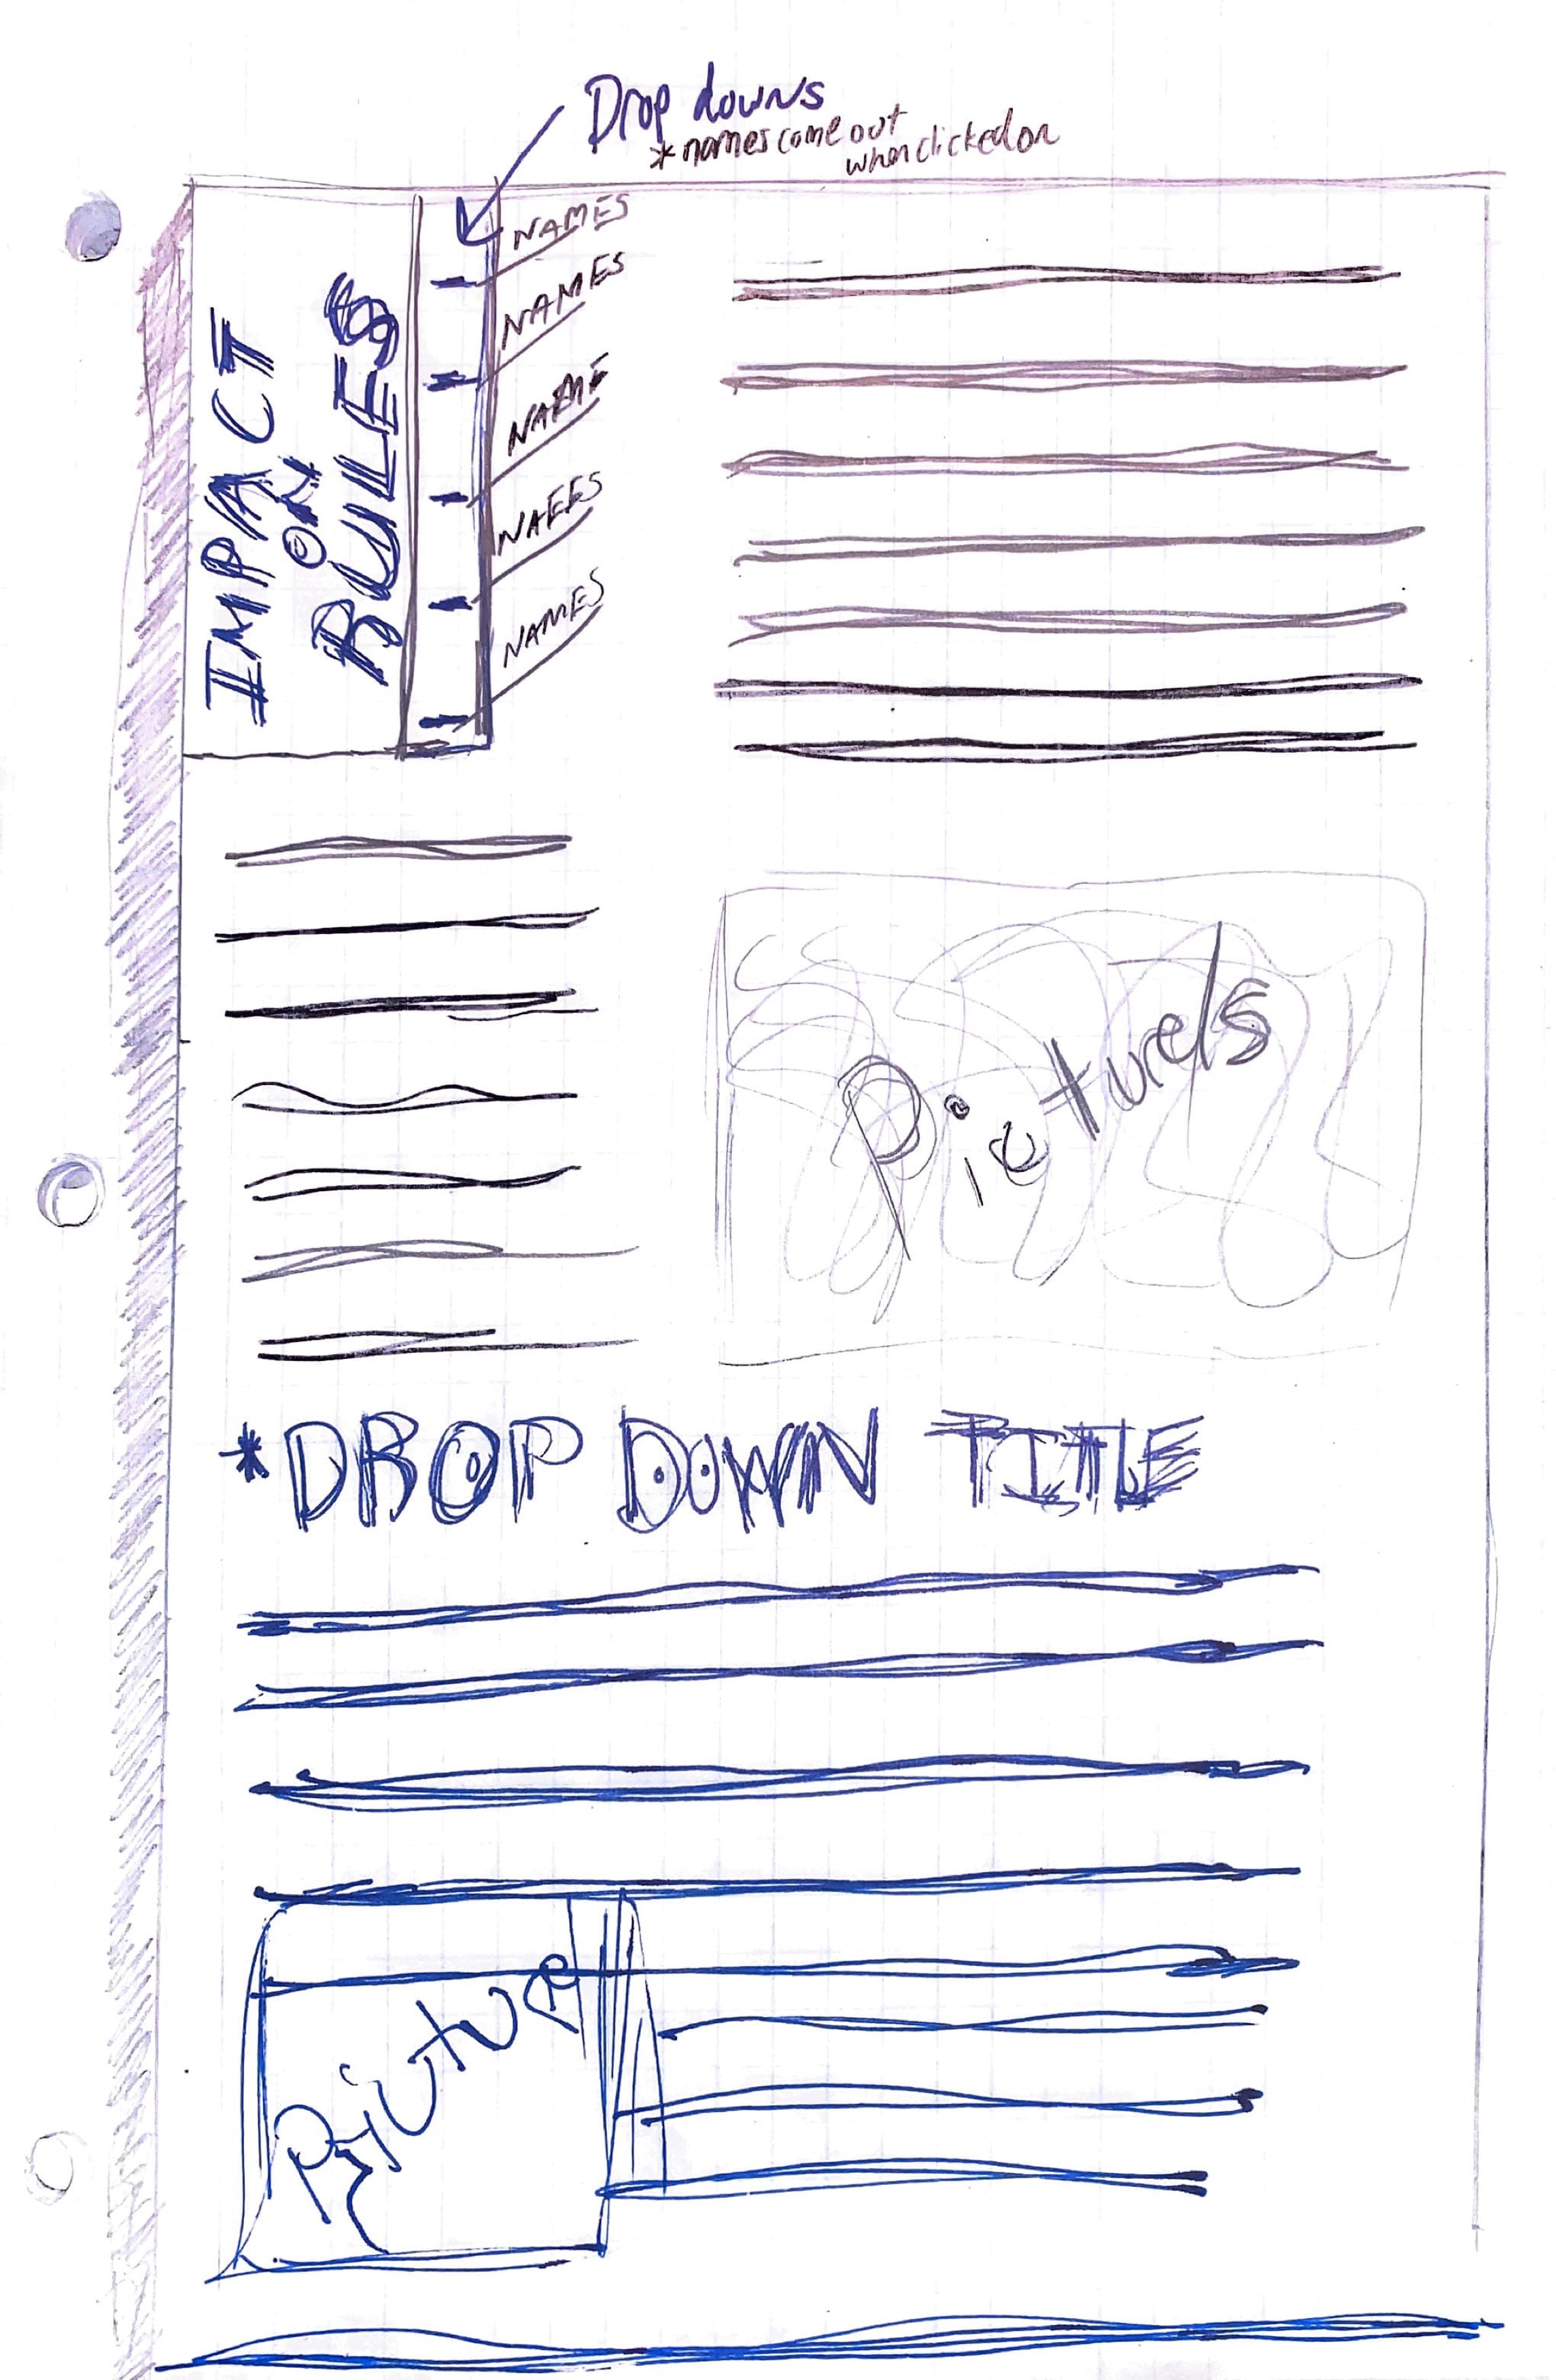 Drop downs
* names come out
when clicked on
IMPACT
ON
RULES
NAMES
NAMES
NAME
NAMES
Pictures
* DROP DOWN TITLE
Picture